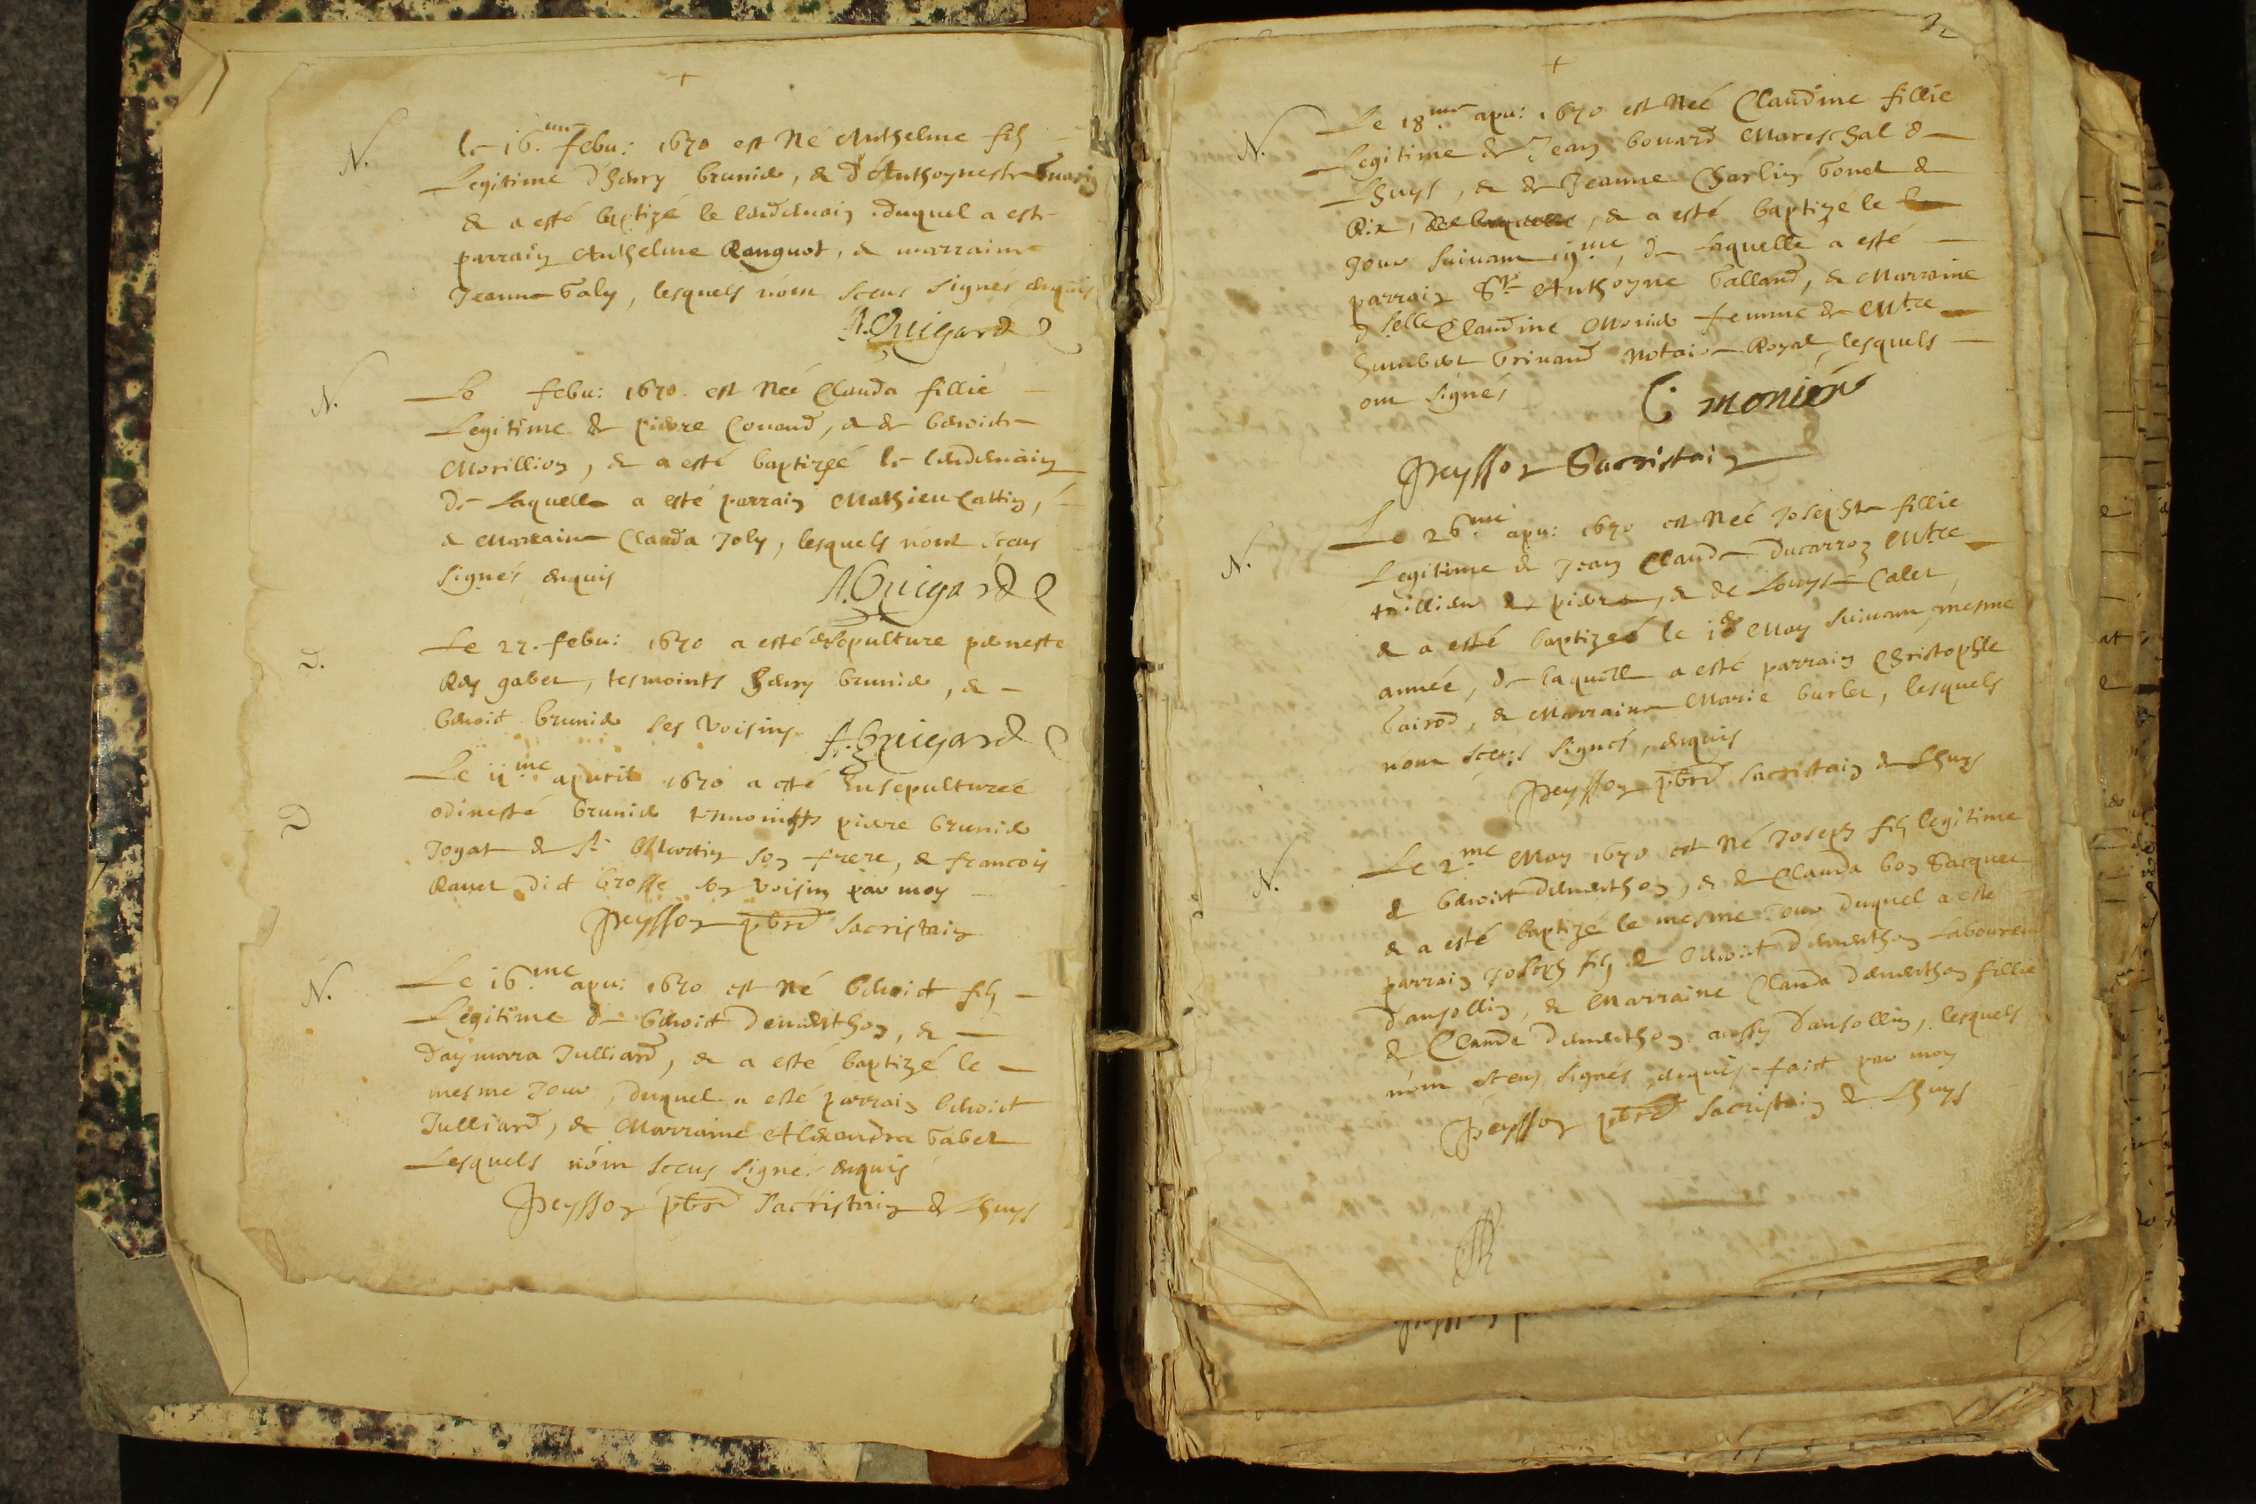 +
N.
le 16.me febu: 1670 est Né Anthelme fils
Legitime d'Henry brunier, & d'Anthoynette
& a esté baptizé le lendemain duquel a esté
parrain Anthelme Ranguot, & marraine
Jeanne Galy, lesquels nont sceus signés enquis
A. Guigard
N.
Le febu: 1670 est Née Clauda fillie
Legitime de pierre Couand, & de benoiste
Morillion, & a esté baptizéé le lendemain
de Laquelle a esté parrain Mathieu Cattin,
& Marraine Clauda Joly, lesquels nont sceus
signés enquis
A. Guigard
D.
Le 27. febu: 1670 a esté ensepulture perneste
Rey gabet, tesmoints Henry brunier, &
benoict brunier ses voisins
A. Guigard
D
Le 11me apuril 1670 a esté Ensepulturéé
brunier tesmoints pierre brunier
Jogat de St Martin son frere, & francois
Ravet dict brosse son voisin par moy
Peysson pbre sacristain
N.
Le 16.me apu: 1670 est Né benoict fils
Legitime de benoict Demerthon, &
Daymara Julliard, & a esté baptizé le
mesme Jour, duquel a esté parrain benoict
Julliard, & Marraine Alexandra Gabet
Lesquels nont sceus signés enquis
Peysson pbre Sacristain de Lhuys
2
+
N.
Le 18me apu: 1670 est Néé Claudine fillie
Legitime de Jean bouard Mareschal de
Lhuys, & de Jeanne Charlin Gonet de
Rix, & a esté baptize le
Jour suivant de laquelle a esté
parrain Sr Anthoyne Galland, & Marraine
Dselle Claudine Monier femme de Mtre
humbert brinand Notaire Royal, lesquels
ont signés
C. monier
Peysson Sacristain
N.
Le 26.me apu: 1670 est Néé Josephte fillie
Legitime de Jean Claude Ducarroz Mtre
taillieur de pierre, & de Louyse Calet,
& a esté baptizeé le May suivant mesme
annéé, de laquelle a esté parrain Christophle
Gairod, & Marraine Marie burlet, lesquels
nont sceus signés, enquis
Peysson pbre sacristain de Lhuys
N.
Le 2.me May 1670 est Né Joseph fils legitime
de benoict demerthon, & de Clauda bon Jacquet
& a esté baptizé le mesme Jour duquel a esté
parrain Joseph fils de benoict demerthon Laboureur
d'ansollin, & Marraine Clauda demerthon fillie
de Claude demerthon aussy d'ansollin, lesquels
nont sceus signés enquis fait par moy
Peysson pbre sacristain de Lhuys